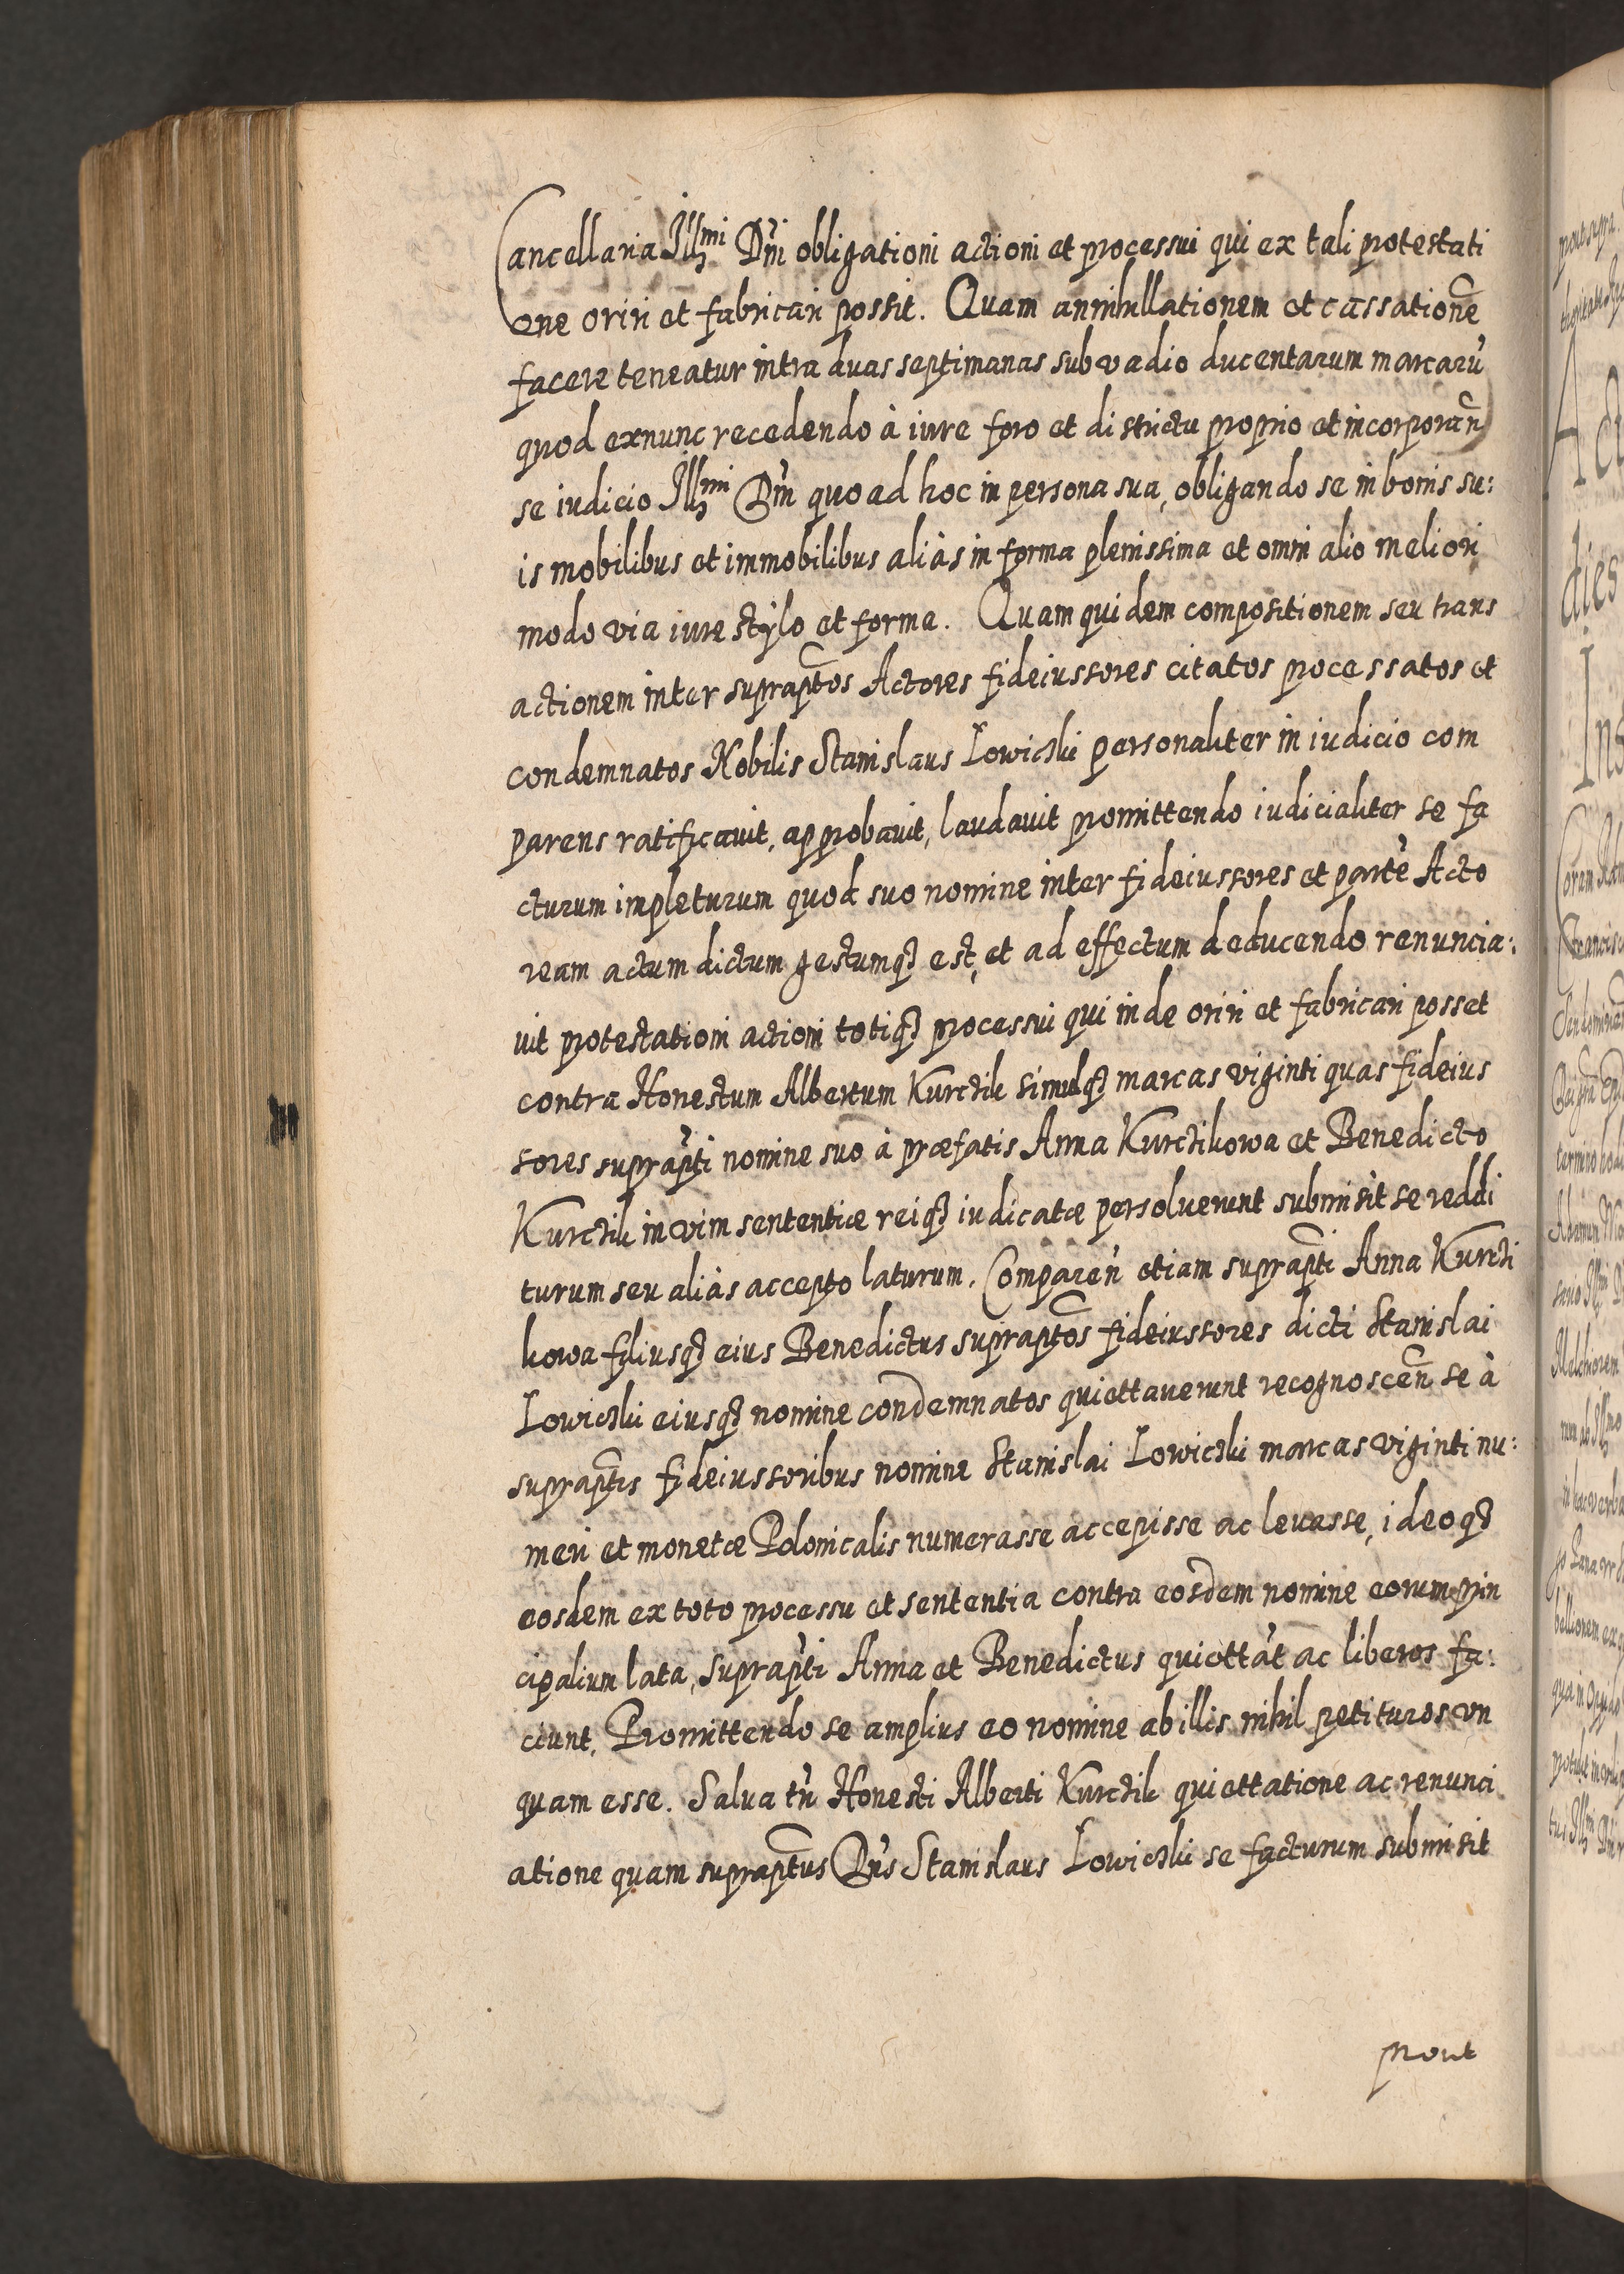 Cancellaria Illmi Dni obligationi actioni et processui qui ex tali protestati
one oriri et fabricari possit. Quam annihillationem et cassatione
facere teneatur intra duas septimanas sub vadio ducentarum marcaru
quod exnunc recedendo à iure foro et districtu proprio et incorporan
se iudicio Illmi Dni quo ad hoc in persona sua, obligando se in bonis su:
is mobilibus et immobilibus aliàs in forma plenissima et omni alio meliori
modo via iure stylo et forma. Quam quidem compositionem seu trans
actionem inter supraptos Actores fideiussores citatos processatos et
condemnatos Nobilis Stanislaus Lowicki personaliter in iudicio com
parens ratificavit, approbavit, laudavit promittendo iudicialiter se fa
cturum impleturum quod suo nomine inter fideiussores et parte Acto
ream actum dictum gestumq3 est, et ad effectum deducendo renuncia:
vit protestationi actioni totiq3 processui qui inde oriri et fabricari posset
contra Honestum Albertum Kurczik simulq3 marcas viginti quas fideius
sores suprapti nomine suo à præfatis Anna Kurczikowa et Benedicto
Kurczik in vim sententiæ reiq3 iudicatæ persoluerunt submisit se reddi
turum seu aliàs accepto laturum. Comparen etiam suprapti Anna Kurczi
kowa filiusq3 eius Benedictus supraptos fideiussores dicti Stanislai
Lowicki eiusq3 nomine condemnatos quiettauerunt recognoscen se à
supraptis fideiussoribus nomine Stanislai Lowicki marcas viginti nu:
meri et monetæ Polonicalis numerasse accepisse ac leuasse, ideoq3
eosdem ex toto processu et sententia contra eosdem nomine eorum prin
cipalium lata, suprapti Anna et Benedictus quiettat ac liberos fa:
ciunt, Promittendo se amplius eo nomine ab illis nihil petituros vn
quam esse. Salua tn Honesti Alberti Kurczik quiettatione ac renunci
atione quam supraptus Dns Stanislaus Lowicki se facturum submisit
prout